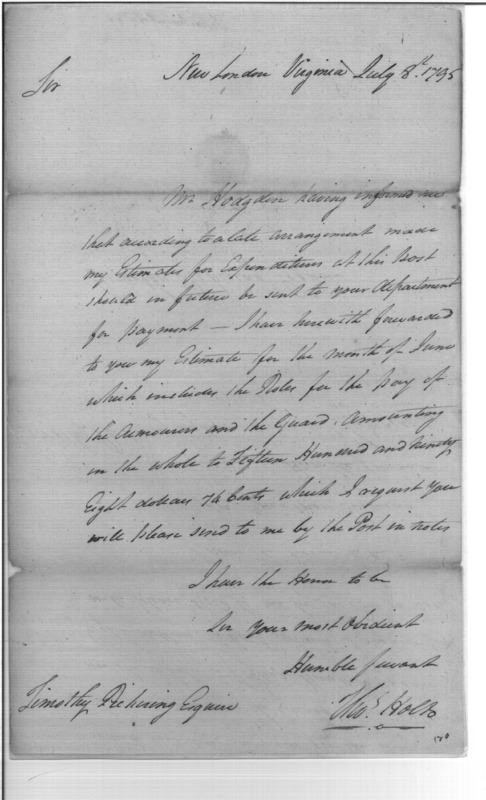 New London Virginia July 8th. 1795
Sir
Mr Hodgdon having informed me
that according to a late arrangement made
my Estimates for Expenditures at this Post
should in future be sent to your department
for payment — I have herewith forwarded
to you my Estimate for the month of June
which includes the Roles for the pay of
the Armourers and the Guard, Amounting
in the whole to Fifteen Hundred and ninety
Eight dollars 74 Cents which I request you
will please send to me by the Post in notes
I have the Honor to be
Sir your most Obedient
Humble Servant
Thos. Holt
Timothy Pickering Esquire